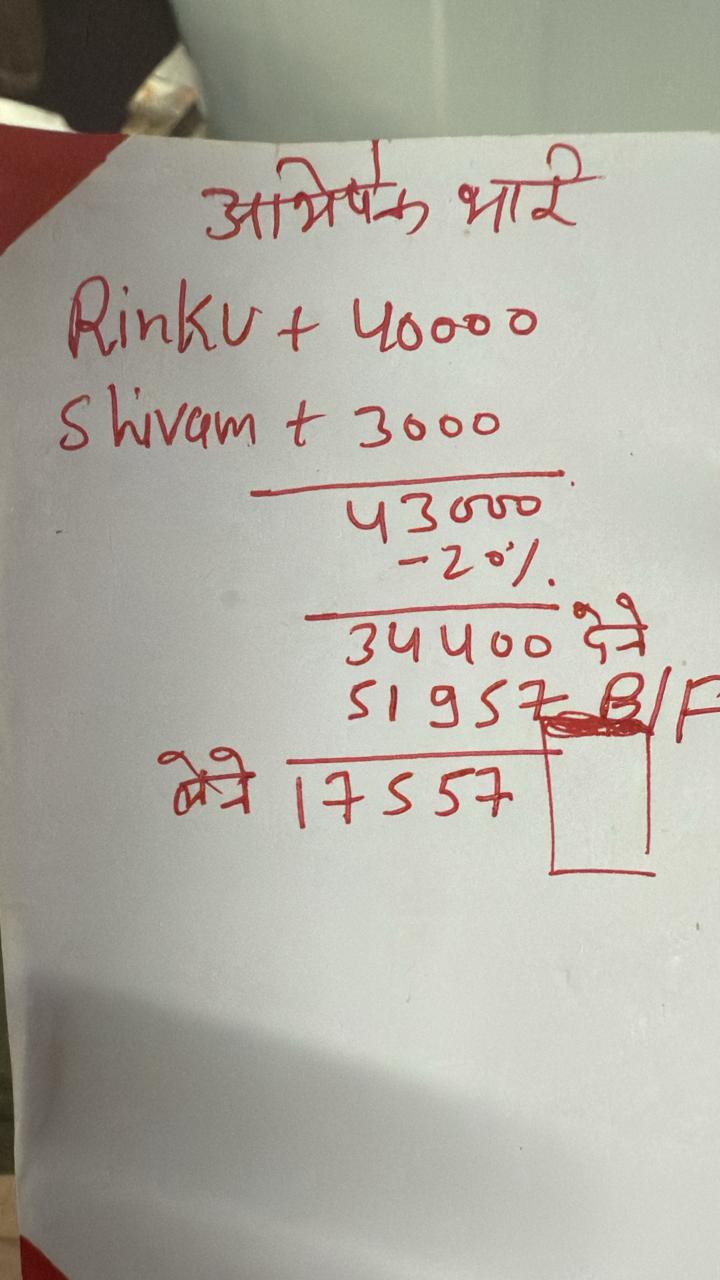 अभिषेक भाई
Rinku + 40000
Shivam + 3000
43000
-20%.
34400 देने
51957 B/F
लेने 17557